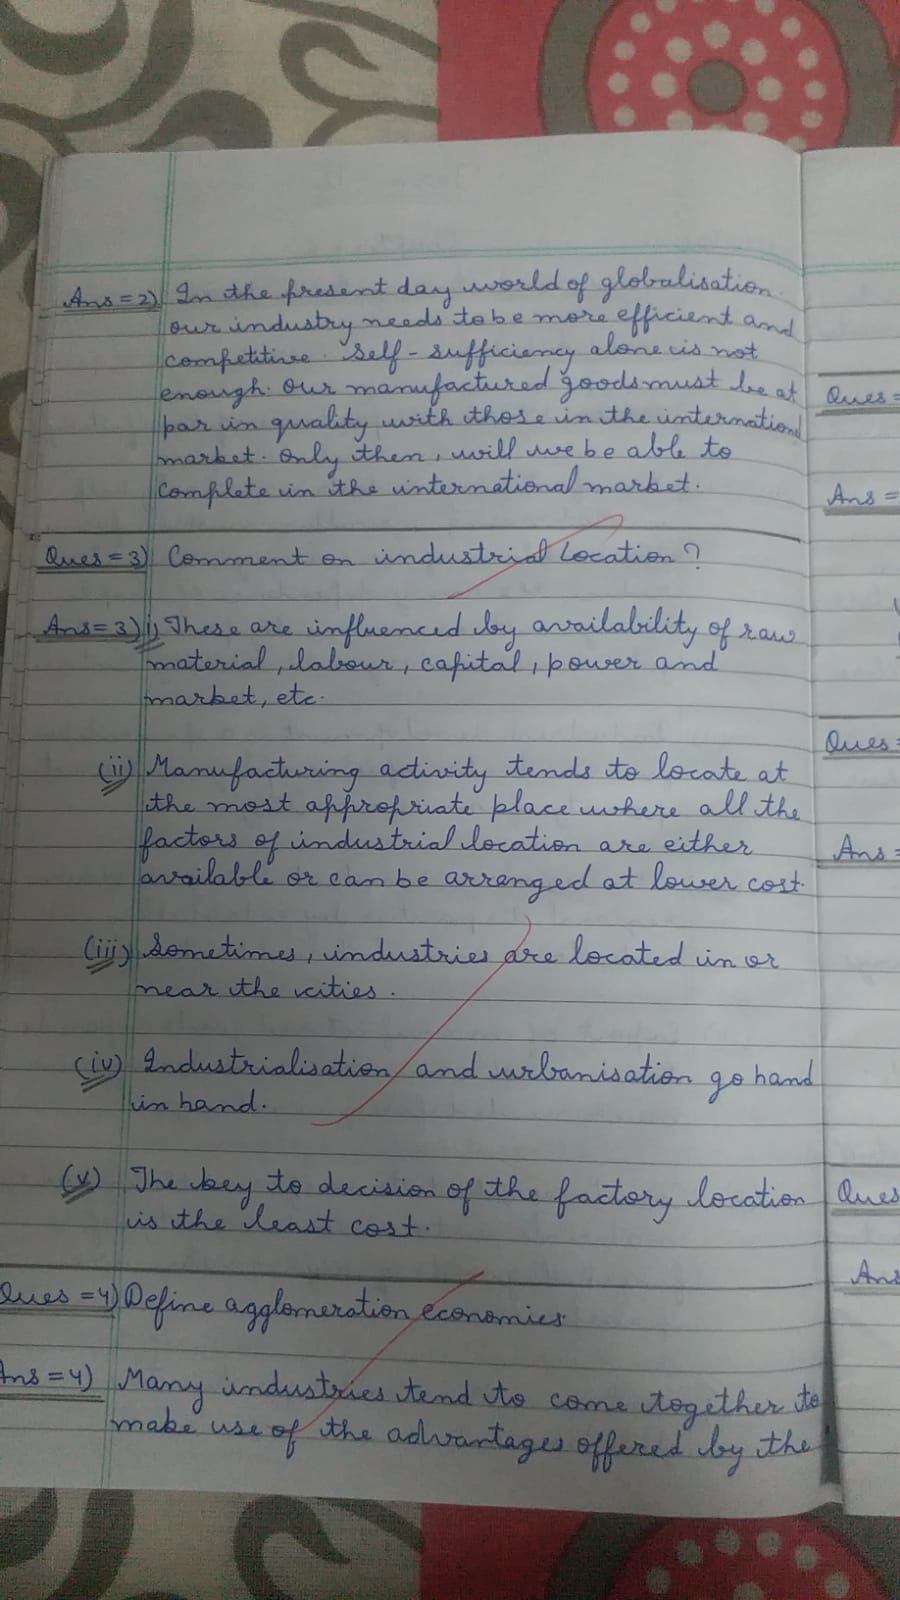 Ans = 2) In the present day world of globalisation
our industry needs to be more efficient and
competitive. Self-sufficiency alone is not
enough. Our manufactured goods must be at
par in quality with those in the international
market. Only then, will we be able to
complete in the international market.
Ques = 3) Comment on industrial Location?
Ans = 3) i) These are influenced by availability of raw
material, labour, capital, power and
market, etc.
(ii) Manufacturing activity tends to locate at
the most appropriate place where all the
factors of industrial location are either
available or can be arranged at lower cost.
(iii) Sometimes, industries are located in or
near the cities.
(iv) Industrialisation and urbanisation go hand
in hand.
(v) The key to decision of the factory location
is the least cost.
Ques = 4) Define agglomeration economies.
Ans = 4) Many industries tend to come together to
make use of the advantages offered by the
Ques =
Ans =
Ques =
Ans =
Ques
Ans